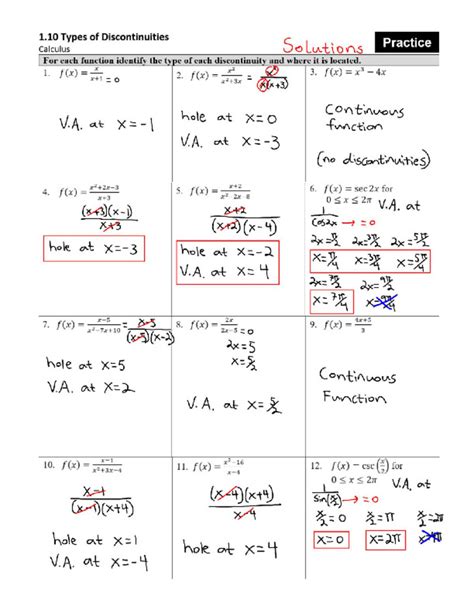 1.10 Types of Discontinuities
Calculus
Solutions
Practice
For each function identify the type of each discontinuity and where it is located.
1. f(x) = x/(x+1) = 0
V.A. at x=-1
2. f(x) = x²/(x²+3x) = x²/(x(x+3))
hole at x=0
V.A. at x=-3
3. f(x) = x³ − 4x
Continuous
function
(no discontinuities)
4. f(x) = (x²+2x−3)/(x+3)
(x+3)(x-1)/(x+3)
hole at x=-3
5. f(x) = (x+2)/(x²−2x−8)
(x+2)/((x+2)(x-4))
hole at x=-2
V.A. at x=4
6. f(x) = sec 2x for
0 ≤ x ≤ 2π V.A. at
1/cos2x → =0
2x=π/2 2x=3π/2 2x=5π/2
x=π/4 x=3π/4 x=5π/4
2x=7π/2 2x=9π/2
x=7π/4 x=9π/4
7. f(x) = (x−5)/(x²−7x+10) = (x-5)/((x-5)(x-2))
hole at x=5
V.A. at x=2
8. f(x) = 2x/(2x−5) = 0
2x=5
x=5/2
V.A. at x=5/2
9. f(x) = (4x+5)/3
Continuous
Function
10. f(x) = (x−1)/(x²+3x−4)
(x-1)/((x-1)(x+4))
hole at x=1
V.A. at x=-4
11. f(x) = (x²−16)/(x−4)
(x-4)(x+4)/(x-4)
hole at x=4
12. f(x) = csc(x/2) for
0 ≤ x ≤ 2π V.A. at
1/sin(x/2) → =0
x/2=0 x/2=π x/2=2π
x=0 x=2π